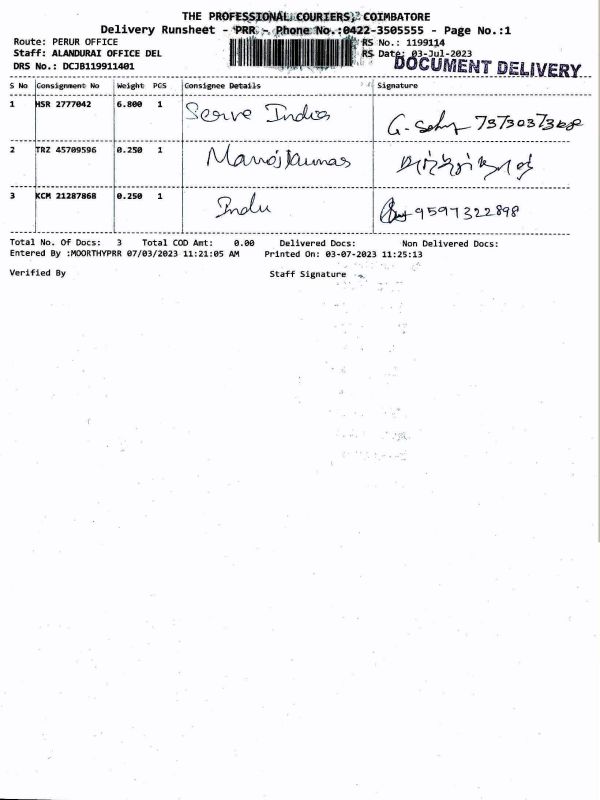 THE PROFESSIONAL COURIERS, COIMBATORE
Delivery Runsheet - PRR - Phone No.:0422-3505555 - Page No.:1
Route: PERUR OFFICE RS No.: 1199114
Staff: ALANDURAI OFFICE DEL RS Date: 03-Jul-2023
DRS No.: DCJB119911401 DOCUMENT DELIVERY
S No Consignment No Weight PGS Consignee Details Signature
1 HSR 2777042 6.800 1 Serve India G.
2 TRZ 45709596 0.250 1 Manojkumar
3 KCM 21287868 0.250 1 Indu 9597322898
Total No. Of Docs: 3 Total COD Amt: 0.00 Delivered Docs: Non Delivered Docs:
Entered By :MOORTHYPRR 07/03/2023 11:21:05 AM Printed On: 03-07-2023 11:25:13
Verified By Staff Signature